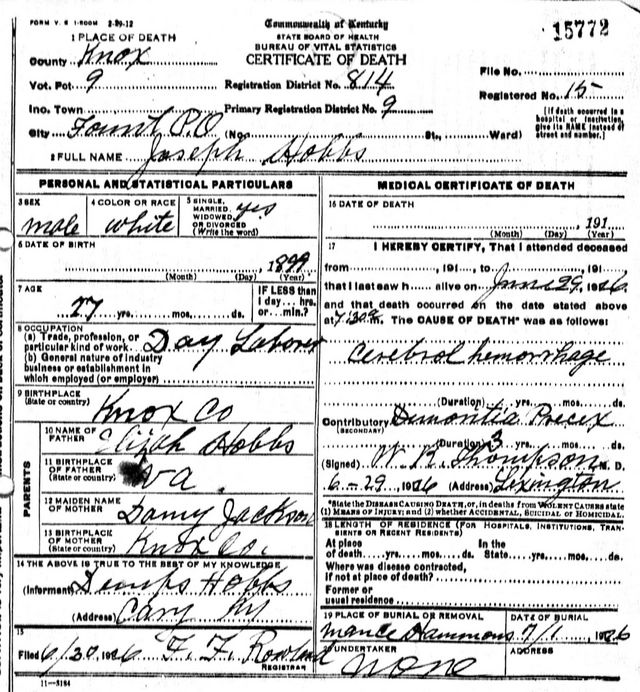 FORM V. S. 1-ROOM 2-29-12
Commonwealth of Kentucky
STATE BOARD OF HEALTH
BUREAU OF VITAL STATISTICS
CERTIFICATE OF DEATH
15772
1 PLACE OF DEATH
County Knox
Vot. Pct 9
Registration District No. 814
File No.
Registered No. 15
Inc. Town
Primary Registration District No. 9
City Fount P.O (No. St., Ward)
[If death occurred in a hospital or institution, give its NAME instead of street and number.]
2 FULL NAME Joseph Hobbs
PERSONAL AND STATISTICAL PARTICULARS
3 SEX male
4 COLOR OR RACE white
5 SINGLE, MARRIED, WIDOWED OR DIVORCED (Write the word) yes
6 DATE OF BIRTH
, 1899
(Month) (Day) (Year)
7 AGE
27 yrs. mos. ds.
IF LESS than 1 day... hrs. or ... min.?
8 OCCUPATION
(a) Trade, profession, or particular kind of work Day Laborer
(b) General nature of industry business or establishment in which employed (or employer)
9 BIRTHPLACE (State or country) Knox Co
PARENTS
10 NAME OF FATHER Elijah Hobbs
11 BIRTHPLACE OF FATHER (State or country) Va.
12 MAIDEN NAME OF MOTHER Jackson
13 BIRTHPLACE OF MOTHER (State or country) Knox Co.
14 THE ABOVE IS TRUE TO THE BEST OF MY KNOWLEDGE
(Informant) Hobbs
(Address) Cary Ky
15
Filed 6/30 1926 F. F. Rowland
REGISTRAR
11-3184
MEDICAL CERTIFICATE OF DEATH
16 DATE OF DEATH
, 191
(Month) (Day) (Year)
17 I HEREBY CERTIFY, That I attended deceased
from , 191 , to , 191 ,
that I last saw h alive on June 29, 1926
and that death occurred on the date stated above
at 7:30 m. The CAUSE OF DEATH* was as follows:
Cerebrol hemorrhage
(Duration) yrs. mos. ds.
Contributory (SECONDARY) Dimontia Precex
(Duration) 3 yrs. mos. ds.
(Signed) W. R. Thompson M. D.
6-29 1926 (Address) Lexington
*State the DISEASE CAUSING DEATH, or, in deaths from VIOLENT CAUSES state (1) MEANS OF INJURY; and (2) whether ACCIDENTAL, SUICIDAL or HOMICIDAL.
18 LENGTH OF RESIDENCE (FOR HOSPITALS, INSTITUTIONS, TRANSIENTS OR RECENT RESIDENTS)
At place of death yrs. mos. ds. In the State yrs. mos. ds.
Where was disease contracted, if not at place of death?
Former or usual residence
19 PLACE OF BURIAL OR REMOVAL Mance Hammons
DATE OF BURIAL 7/1, 1926
20 UNDERTAKER None
ADDRESS